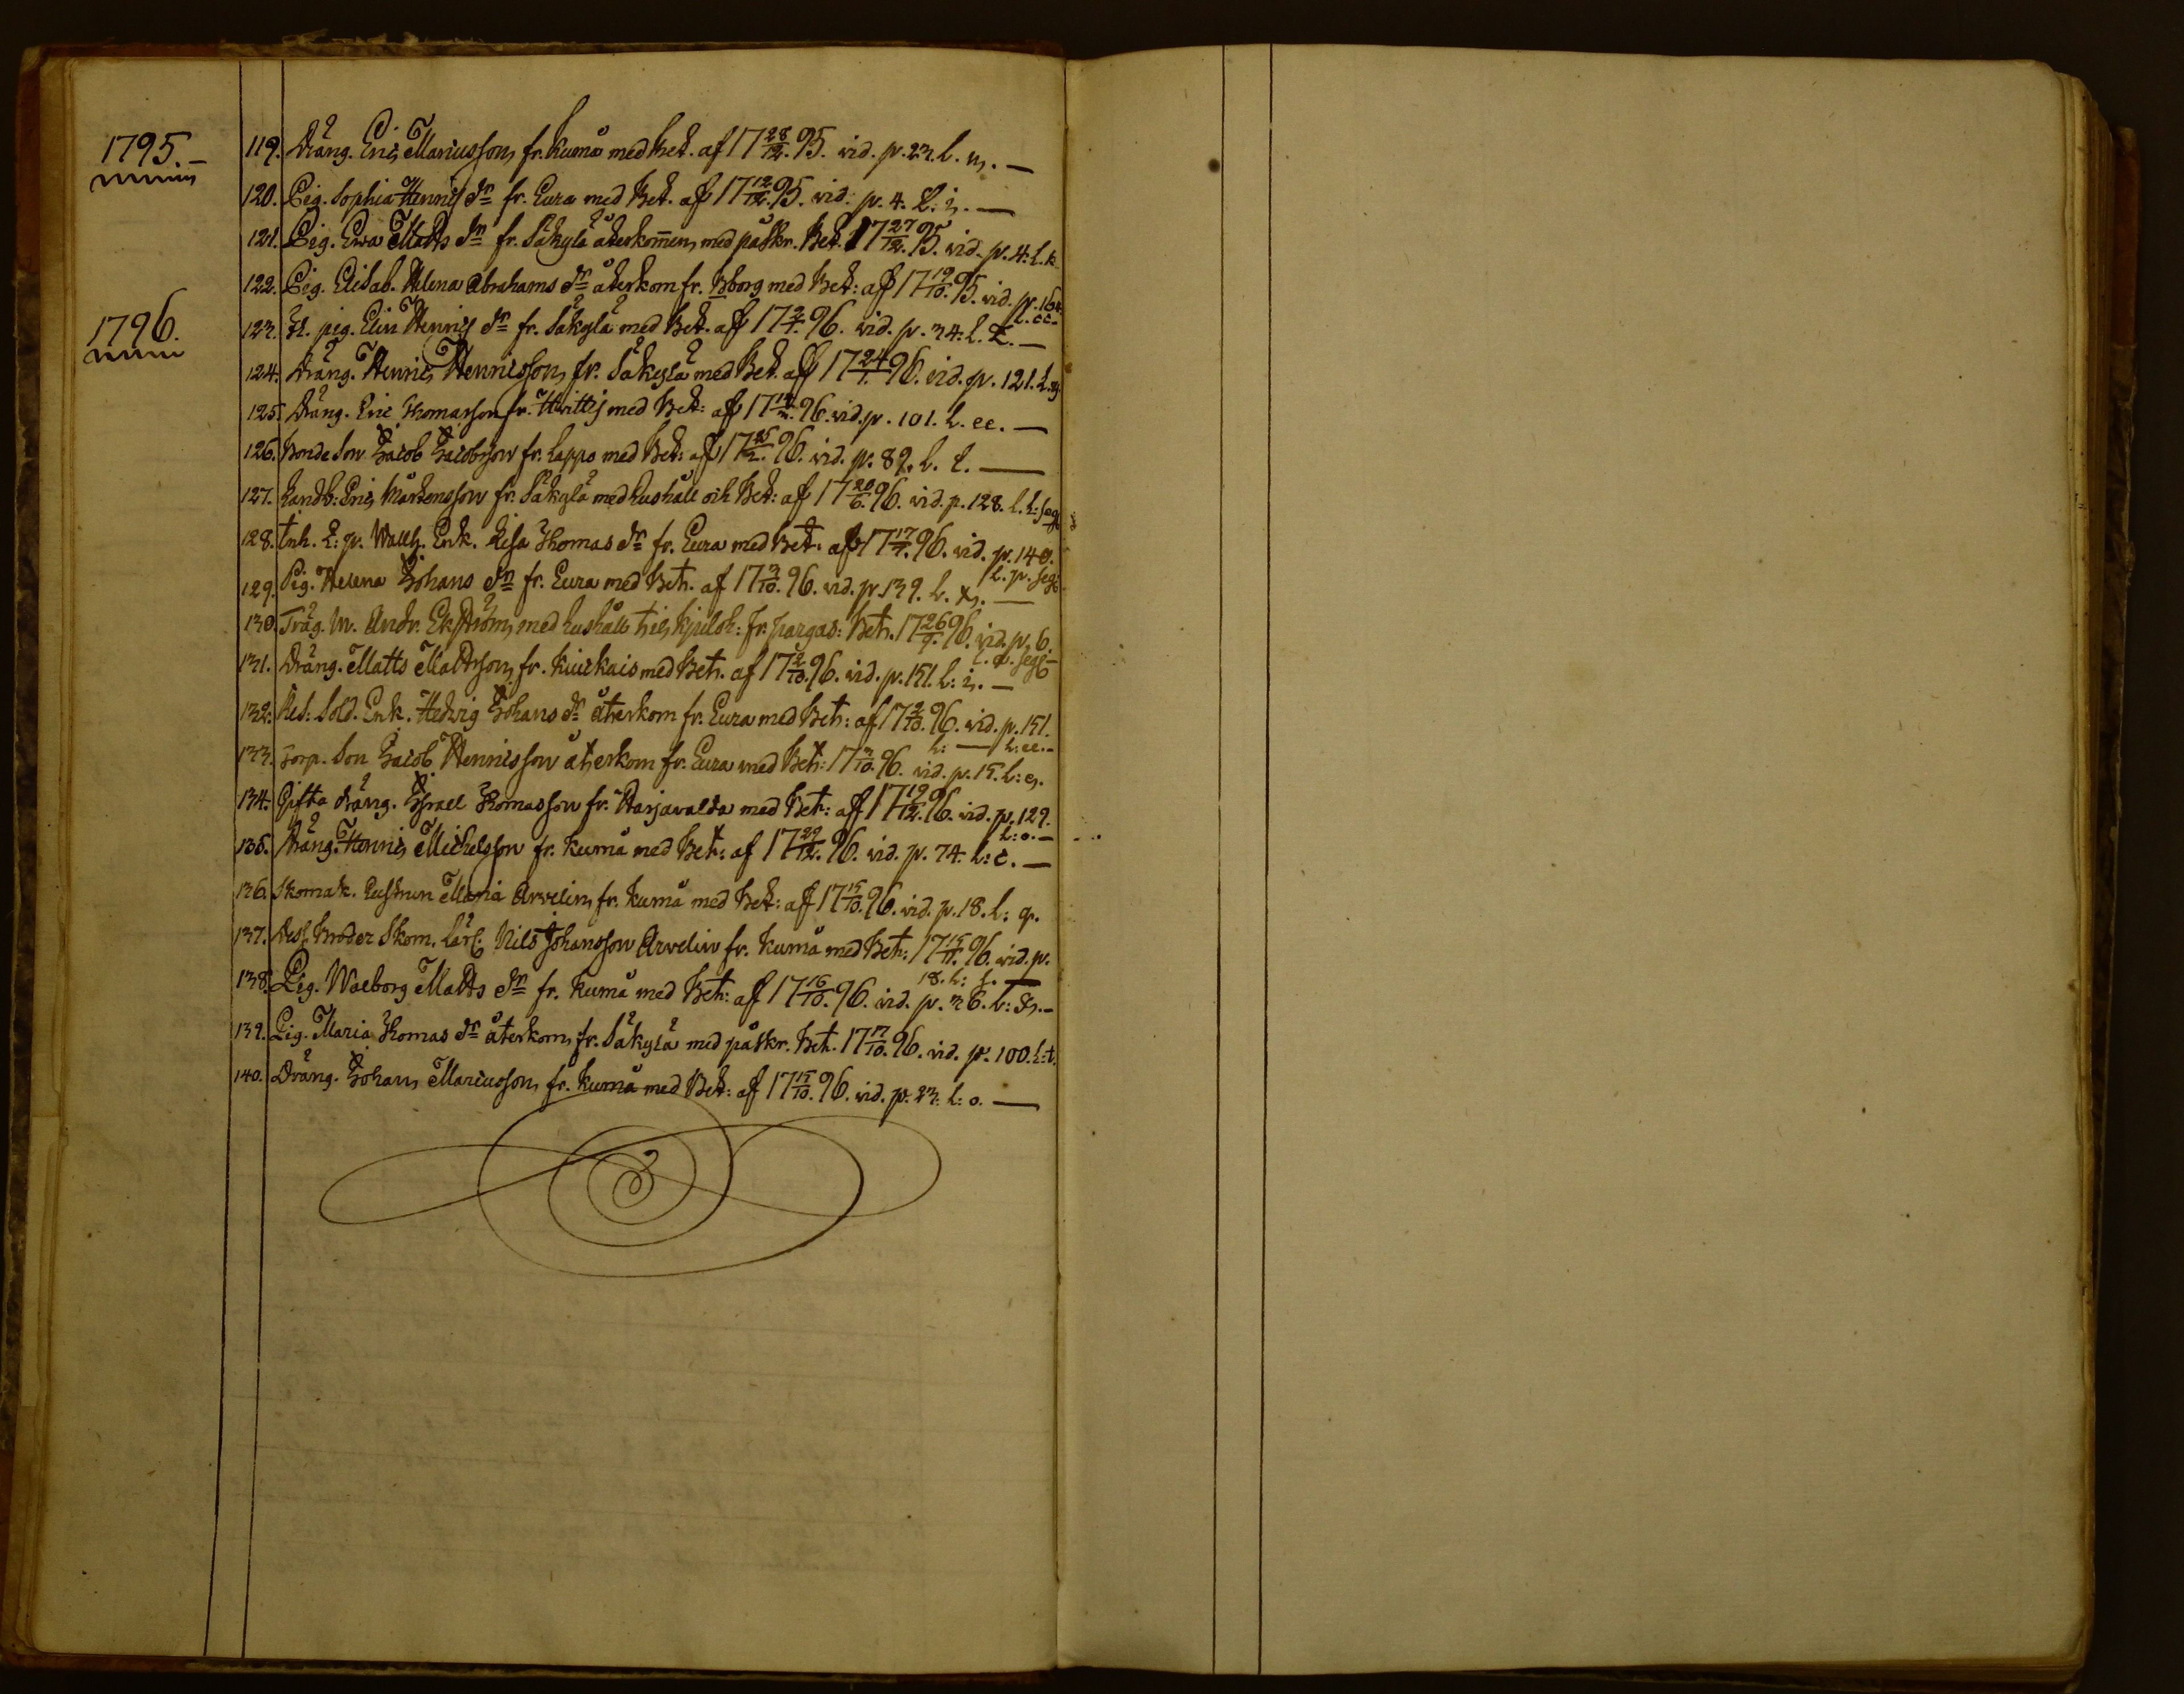 1795.
119. Dräng. Eric Marcusson fr. Kumå med bet. af 17 28/12. 95. vid. p. 23. L. n. —
120. Pig. Sophia Henrics dr fr. Eura med Bet. aff 17 12/12. 95. vid. p. 4. L. i. —
121. Pig. Ewa Matts dr fr. Säkylä återkommen med påskr. Bet. 17 27/12. 95. vid. p. 4. L. k
122. Pig. Elisab. Helena Abrahams dr återkom fr. Bborg med Bet: aff 17 19/10. 95. vid. p. 164.
L. cc.
1796.
123. pig. Elin Henrics dr fr. Säkylä med Bet. aff 17 2/1. 96. vid. p. 34. L. —
124. Dräng. Henric Henricsson fr. Säkylä med Bet. aff 17 24/1. 96. vid. p. 121. L.
125. Dräng. Eric Thomasson fr. Hvittis med Bet: aff 17 96. vid. p. 101. L. ee. —
126. Bonde Son Jacob Jacobsson fr. Lappo med Bet: aff 17 25/2. 96. vid. p. 89. L. l. —
127. Landb: Eric Mårtensson fr. Säkylä med hushåll och Bet: af 17 20/6. 96. vid. p. 128. L.
128. Inh. Enk. Lisa Thomas dr fr. Eura med Bet. aff 17 17/7. 96. vid. p. 140.
L. p. seq.
129. Pig. Helena Johans dr fr. Eura med Bet. af 17 3/10. 96. vid. p. 139. L. —
130. Träg. M. Andr. Ekström med hushåll till Kjuloh: fr. pargas: Bet. 17 26/9. 96. vid. p. 6.
131. Dräng. Matts Mattsson fr. Kiukais med Bet. af 17 2/10. 96. vid. p. 151. L: i. —
132. Res: Sold. Enk. Hedvig Johans dr återkom fr. Eura med Bet: af 17 2/10. 96. vid. p. 151.
L: — L: ee. —
133. Torp. Son Jacob Henricsson återkom fr. Eura med Bet: 17 3/10. 96. vid. p. 15. L: e.
134. Gifta dräng. Israel Thomasson fr. Harjavalda med Bet: aff 17 19/12. 96. vid. p. 129.
L: o. —
135. Dräng. Henric Michelsson fr. Kumå med Bet: af 17 29/12. 96. vid. p. 74. L: c. —
136. Skomak. Hustrun Maria Arvelin fr. Kumå med Bet: aff 17 15/10. 96. vid. p. 18. L: q.
137. Dess Broder Skom. Lärl. Nils Johansson Arvelin fr. Kumå med Bet: 17 15/11. 96. vid. p.
18. L: —
138. Pig. Walborg Matts dr fr. Kumå med Bet: aff 17 16/10. 96. vid. p. 36. L: —
139. Pig. Maria Thomas dr återkom fr. Säkylä med påskr. Bet. 17 17/10. 96. vid. p. 100. L: t.
140. Dräng. Johan Marcusson fr. Kumå med Bet: aff 17 15/10. 96. vid. p. 23. L: o. —